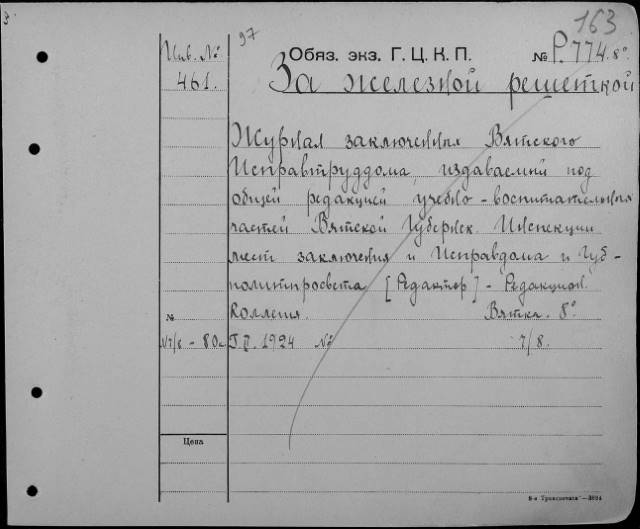 97
163
Инв. №
461.
Обяз. экз. Г. Ц. К. П.
№ Р. 774. 8°
За железной решеткой
Журнал заключенных Вятского
Исправтруддома, издаваемый под
общей редакцией учебно-воспитательных
частей Вятской Губернск. Инспекции
мест заключения и Исправдома и Губ-
политпросвета [Редактор] - Редакцион.
Коллегия. Вятка. 8°
№
№7/8 - 80к
Г.II. 1924 № 7/8.
Цена